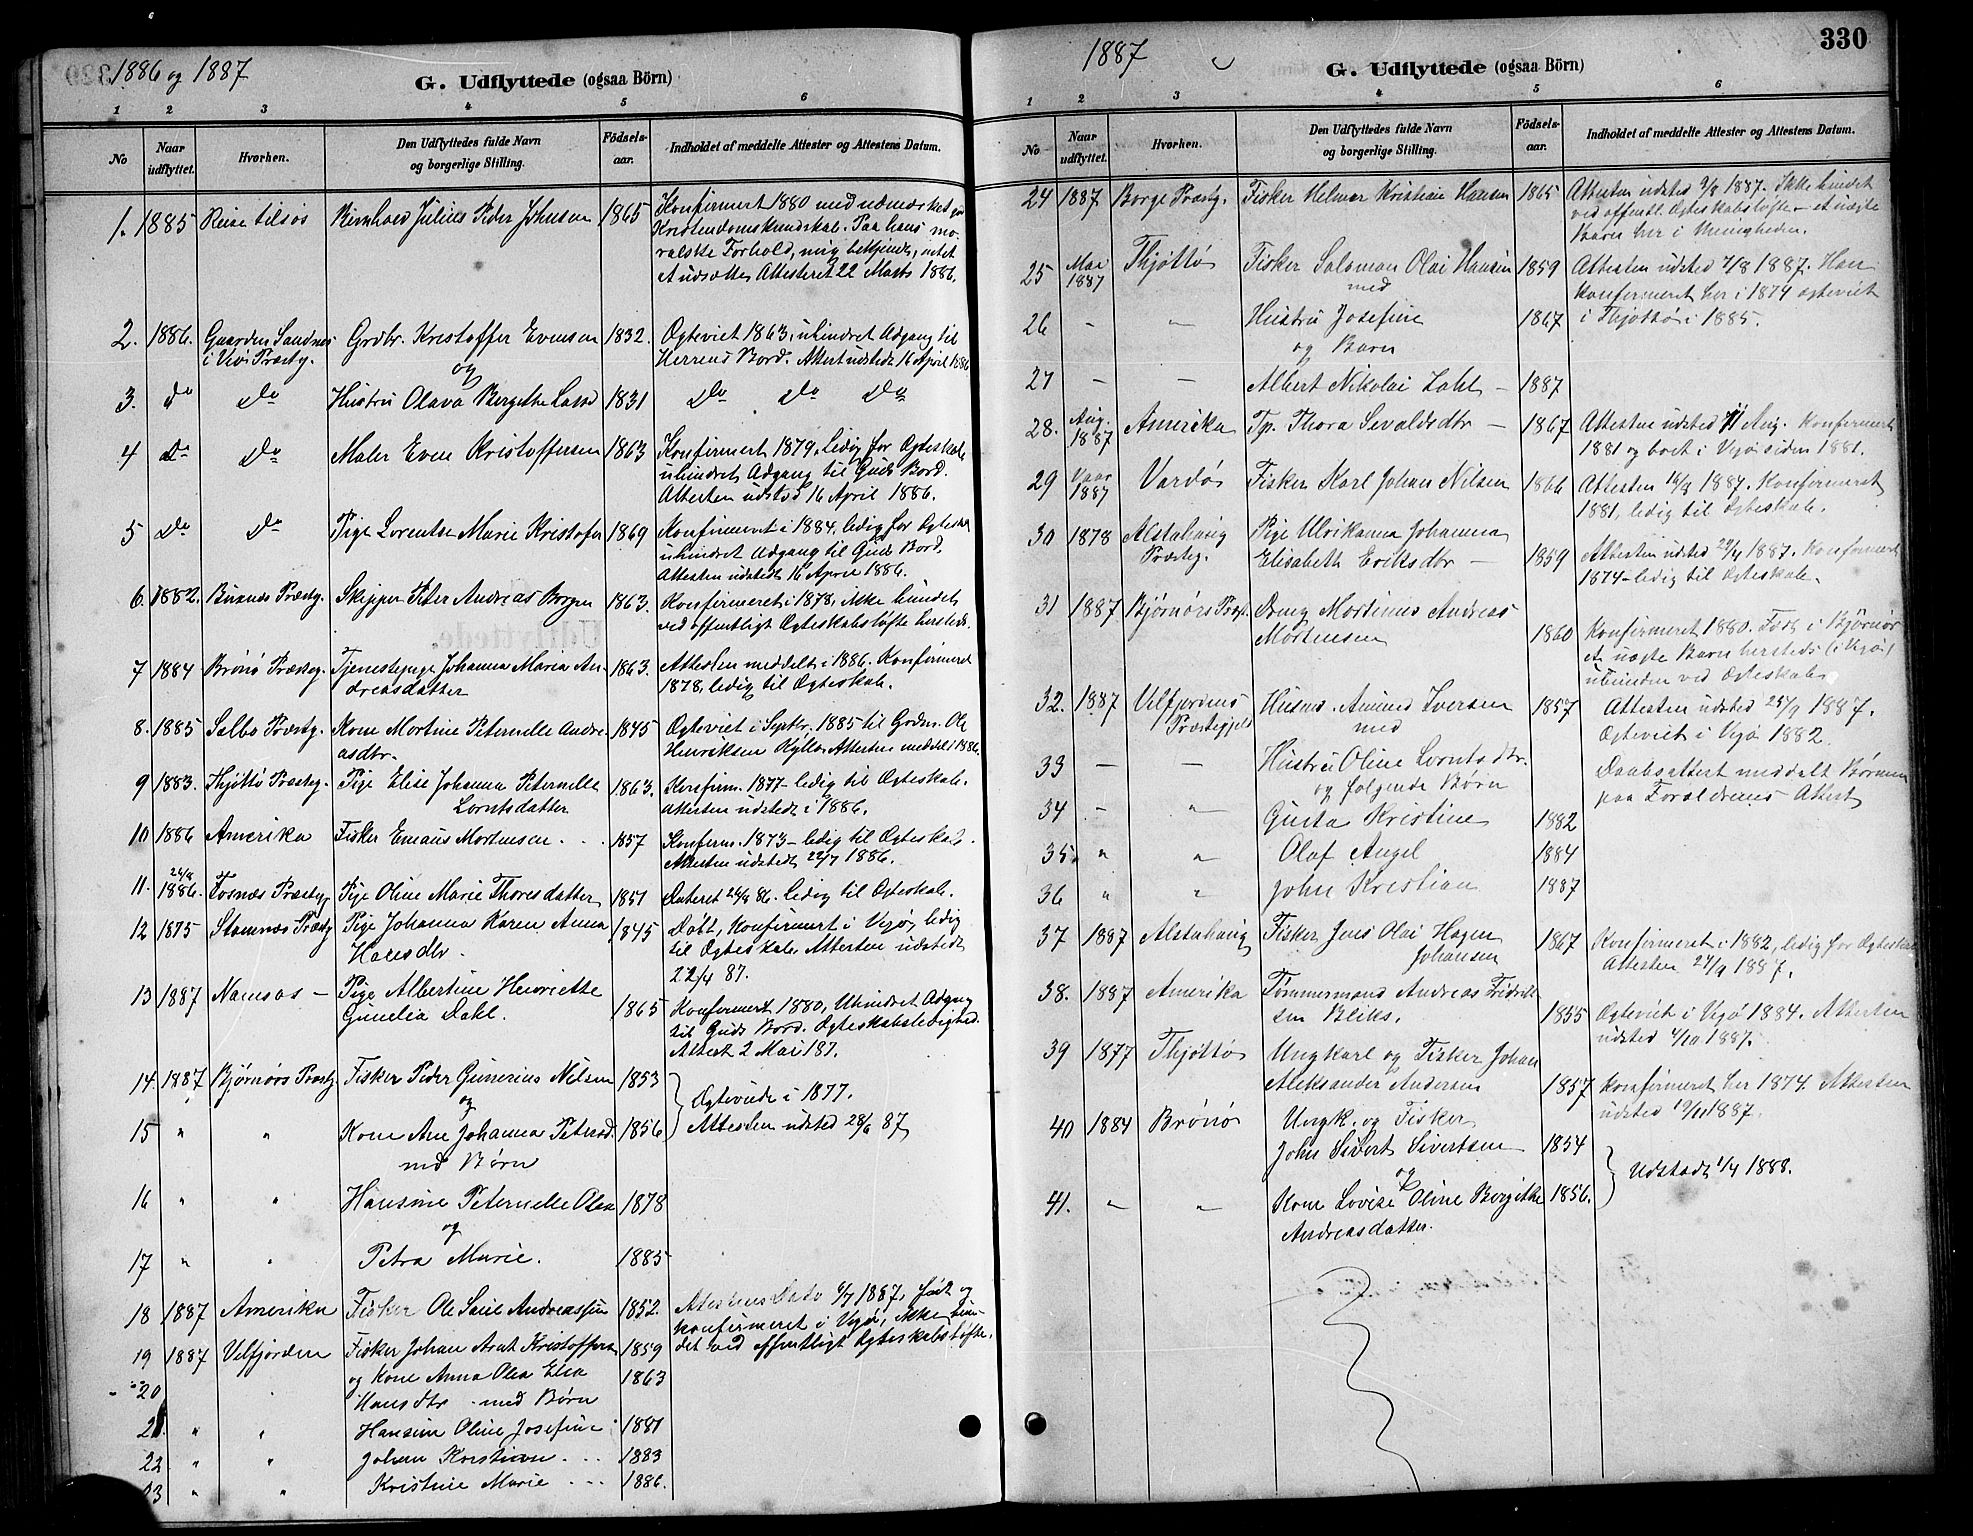 1886 og 1887
G. Udflyttede (ogsaa Börn)
1 2 3 4 5 6
No
Naar udflyttet.
Hvorhen.
Den Udflyttedes fulde Navn og borgerlige Stilling.
Födsels-aar.
Indholdet af meddelte Attester og Attestens Datum.
1. 1885 Reise tilsøs Bernhard Julius Peder Johnsen 1865 Konfirmert 1880 med udmærket god
Kristendomskundskab. Paa hans mo-
ralske Forhold, mig bekjendt, intet
at udsætte. Attesteret 22 Marts 1886.
2. 1886. Gaarden Sandnes Grdbr. Kristoffer Evensen 1832. Ægteviet 1863, uhindret Adgang til
i Vejø Præstg. og Herrens Bord. Attest udstedt 16 April 1886
3. Do Do Hustru Olava Bergitte Lassd 1831 Do Do Do
4 Do Do Maler Even Kristoffersen 1863 Konfirmert 1879, ledig for Ægteskab
uhindret Adgang til Guds Bord.
Attesten udsted 16 April 1886.
5 Do Do Pige Lorentse Marie Kristofer 1869 Konfirmeret i 1884, ledig for Ægteskab
uhindret Adgang til Guds Bord.
Attesten udstedt 16 April 1886.
6. 1882. Buknæs Præstg. Skipper Peter Andreas Borgen 1863. Konfirmeret i 1878, ikke bundet
ved offentligt Ægteskabsløfte hersteds.
7 1884 Brønø Præsteg. Tjenestepige Johanna Maria An- 1863. Attesten meddelt i 1886. Konfirmeret
dreasdatter 1878, ledig til Ægteskab.
8. 1885 Selbo Præstg. Kone Martine Peternelle Andre- 1845 Ægteviet i Septbr. 1885 til Grdbr. Ole
asdtr. Henriksen Kyllo. Attesten meddelt 1886.
9 1883. Thjøttø Præstg. Pige Elise Johanna Peternelle 1863. Konfirm. 1877 - ledig til Ægteskab.
Lorntsdatter Attesten udstedt i 1886.
10 1886 Amerika Fisker Emaus Mortensen . . 1857 Konferm. 1873 - ledig til Ægteskab.
Attesten udstedt 22/7 1886.
11. 24/8 1886. Fosnæs Præstg. Pige Oline Marie Thoresdatter 1851 Dateret 24/8 86. ledig til Ægteskab.
12 1875 Stamnæs Præstg Pige Johanna Karen Anna 1845 Døbt, Konfirmert i Vejø, ledig
Hansdtr. til Ægteskab. Attesten udstedt
22/4 87.
13 1887 Namsos - Pige Albertine Henriette
Gunelia Dahl. 1865 Konfirmert 1880, Uhindret Adgang
til Guds Bord. Ægteskabsledighed.
Attest 2 Mai 187.
14. 1887 Bjørnørs Præstg. Fisker Peder Gunerius Nilsen 1853
og Ægteviede i 1877.
15 " " Kone Ane Johanna Petersd. 1856 Attesten udsted 28/6 87
med Børn
16 " " Hansine Peternelle Olea 1878
og
17 " " Petra Marie. 1885
18 1887 Amerika Fisker Ole Andreassen 1852. Attestens Dato 6/7 1887, født og
konfirmeret i Vejø, ikke bun-
19 1887 Velfjorden Fisker Johan Arnt Kristoffersen 1859 det ved offentligt Ægteskabsløfte.
20 og Kone Anna Olea Elea 1863
Hansdtr. med Børn
21. " " Hansine Oline Josefine 1881
22 " " Johan Kristian . . . 1883
23 " " Kristine Marie - - - 1886.
1887
G. Udflyttede (ogsaa Börn)
330
1 2 3 4 5 6
No
Naar udflyttet.
Hvorhen.
Den Udflyttedes fulde Navn og borgerlige Stilling.
Födsels-aar.
Indholdet af meddelte Attester og Attestens Datum.
24 1887 Borge Præstg. Fisker Helmer Kristian Hansen 1865 Attesten udsted 9/8 1887. Ikke bundet
ved offentl. Ægteskabsløfte - et uægte
Barn her i Menigheden.
25 Mai 1887 Thjøttø Fisker Salomon Olai Hansen 1859 Attesten udsted 7/8 1887. Han
med konfirmeret her i 1874 ægteviet
26 - " Hustru Josefine 1867 i Thjøttø i 1885.
og Barn
27 - - Albert Nikolai Zahl - 1887
28. Aug. 1887 Amerika Tp. Thora Sivaldsdtr - 1867 Attesten udsted 11 Aug. Konfirmert
1881 og boet i Vejø siden 1881.
29 Vaar 1887 Vardø Fisker Karl Johan Nilsen 1866 Attesten 16/8 1887. Konfirmeret
1881, ledig til Ægteskab.
30 1878 Alstahaug Pige Ulrikanna Johanna
Præsteg. Elisabeth Eriksdtr - 1859 Attesten udsted 29/4 1887. Konfirmert
1874 - ledig til Ægteskab.
31 1887 Bjørnørs Præst. Dreng Mortinus Andreas
Mortensen 1860 Konfirmeret 1880. Født i Bjørnør
et uægte Barn hersteds (i Vejø)
ubunden ved Ægteskabs
32. 1887 Vilfjordens Husmd. Amund Iversen 1857 Attesten udsted 25/9 1887.
Præstegjeld med Ægteviet i Vejø 1882.
33 - - Hustru Oline Lorntsdtr. Daabsattest meddelt Børnene
og følgende Børn paa Forældrenes Attest
34 - " Gusta Kristine 1882
35. " " Olaf Angel 1884
36 " " John Kristian 1887
37 1887 Alstahaug Fisker Jens Olai Hagen
Johansen 1867 Konfirmeret i 1882, ledig for Ægteskab
Attesten 27/9 1887.
38. 1887 Amerika Tømmermand Andreas Fridrik-
sen Bliks. 1855 Ægteviet i Vejø 1884. Attesten
udsted 4/10 1887.
39 1877 Thjøttø Ungkarl og Fisker Johan
Aleksander Andersen 1857 Konfirmeret her 1874. Attesten
udsted 19/11 1887.
40 1884 Brønø Ungk. og Fisker
John Sivert Sivertsen 1854
og Udstedt 1/4 1888.
41. " " Kone Lovise Oline Bergitte 1856.
Andreasdatter.